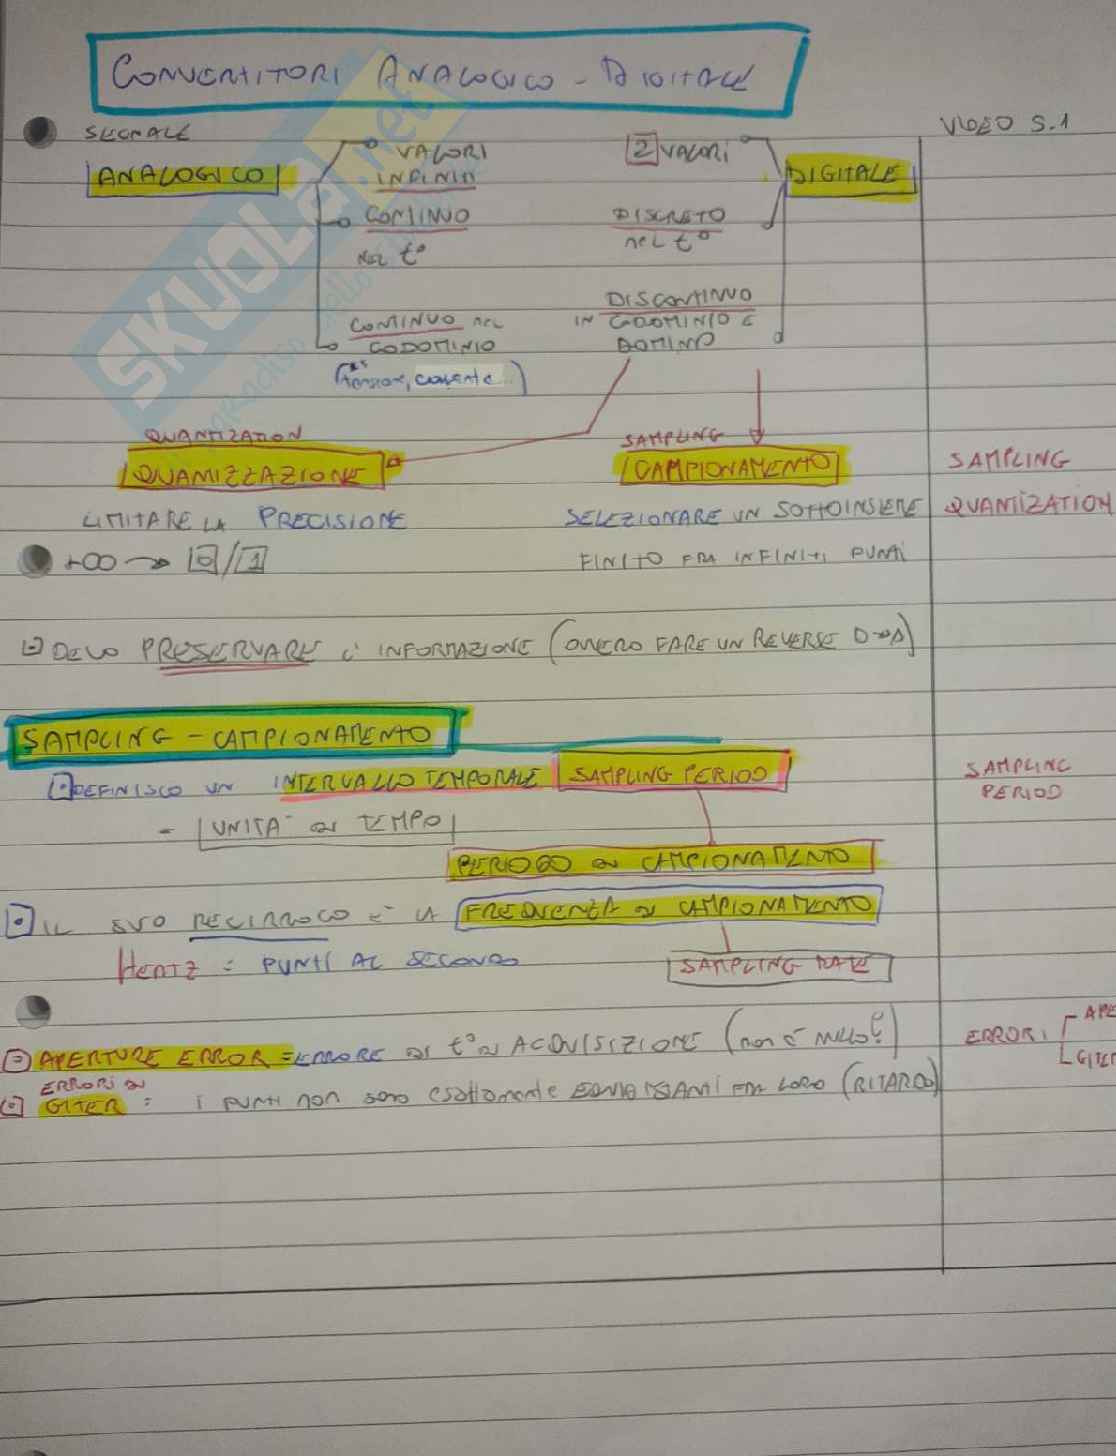 CONVERTITORI ANALOGICO - DIGITALE
VIDEO 5.1
SEGNALE
ANALOGICO
VALORI
INFINITI
CONTINUO
NEL t°
CONTINUO NEL
CODOMINIO
(es tensione, corrente...)
2 VALORI
DIGITALE
DISCRETO
NEL t°
DISCONTINUO
IN CODOMINIO E
DOMINIO
QUANTIZATION
QUANTIZZAZIONE
LIMITARE LA PRECISIONE
+∞ → 0/1
SAMPLING
CAMPIONAMENTO
SELEZIONARE UN SOTTOINSIEME
FINITO FRA INFINITI PUNTI
SAMPLING
QUANTIZATION
DEVO PRESERVARE L'INFORMAZIONE (OVVERO FARE UN REVERSE D→A)
SAMPLING - CAMPIONAMENTO
DEFINISCO UN INTERVALLO TEMPORALE SAMPLING PERIOD
SAMPLING
PERIOD
- UNITA' DI TEMPO
PERIODO DI CAMPIONAMENTO
IL SUO RECIPROCO È LA FREQUENZA DI CAMPIONAMENTO
HERTZ = PUNTI AL SECONDO
SAMPLING RATE
APERTURE ERROR = ERRORE DI t° DI ACQUISIZIONE (non è nullo!)
ERRORI DI
GITER = i PUNTI non sono esattamente EQUIDISTANTI FRA LORO (RITARDO)
ERRORI
APE
GITER
SKUOLA.net